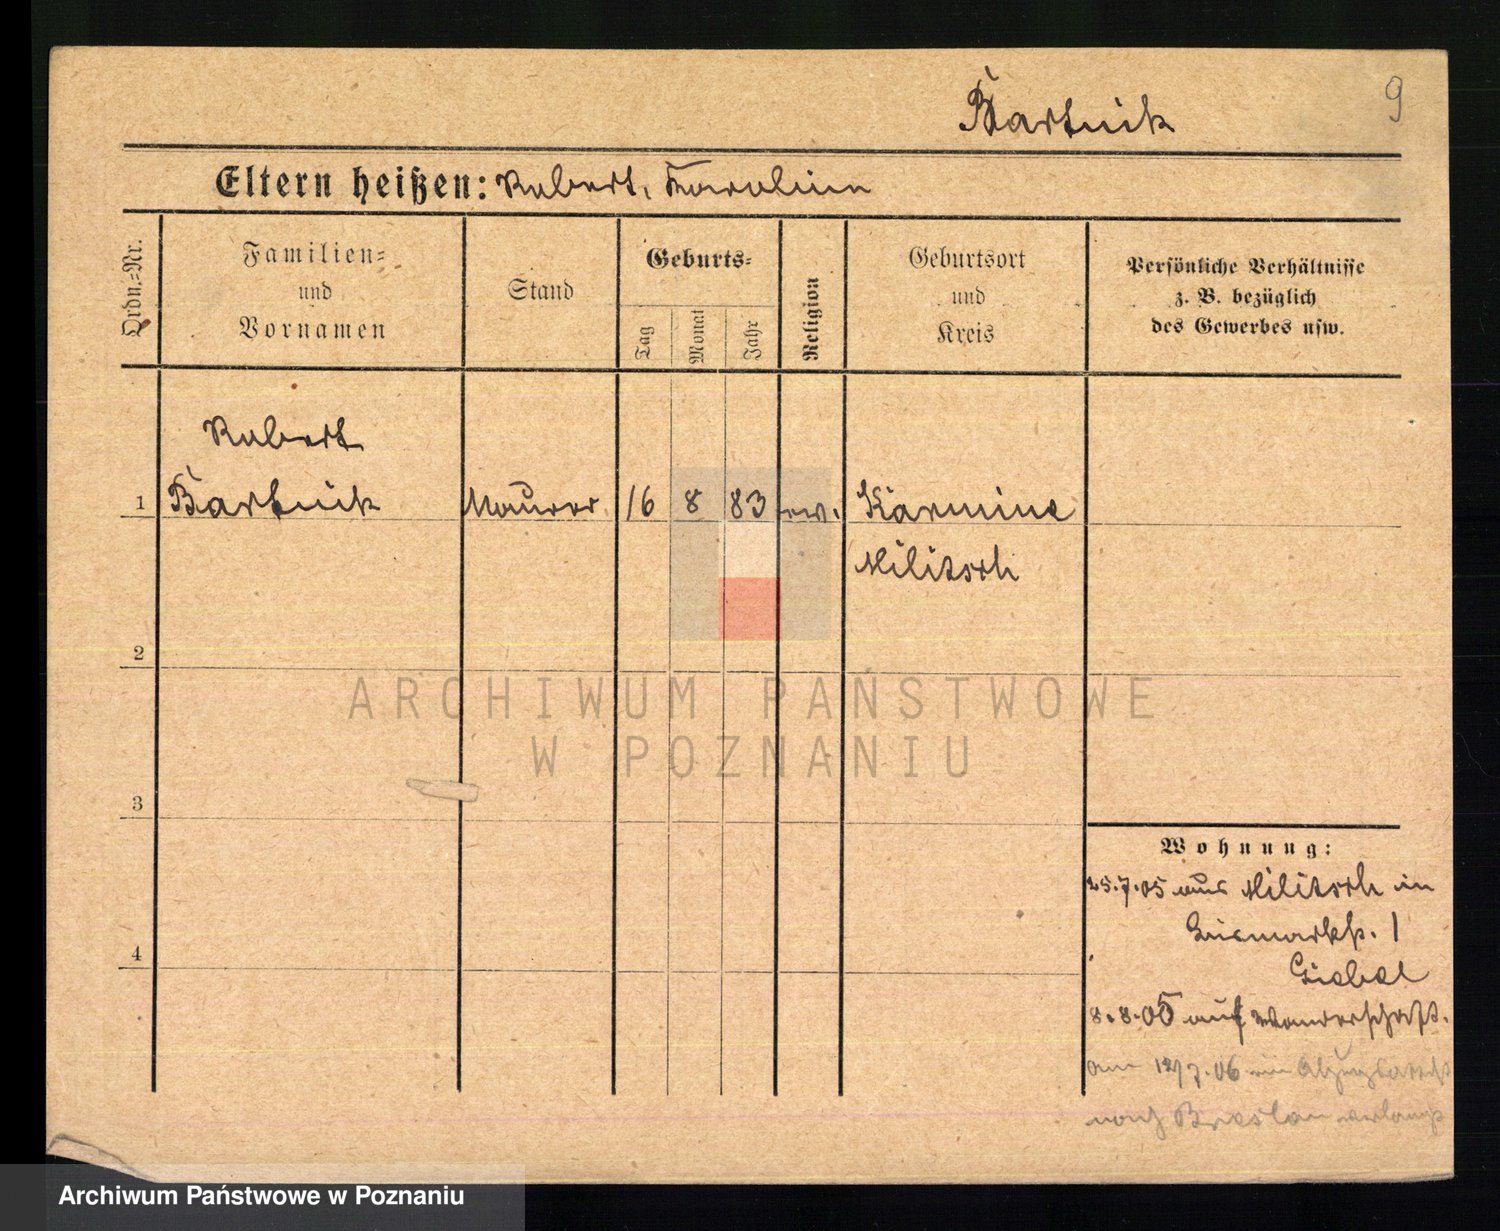 9
Bartnik
Eltern heißen: Robert, Karoline
Ordn.-Nr.
Familien-
und
Vornamen
Stand
Geburts-
Tag
Monat
Jahr
Religion
Geburtsort
und
Kreis
Persönliche Verhältnisse
z. B. bezüglich
des Gewerbes usw.
Robert
1 Bartnik Maurer 16 8 83 ev. Karmine
Militsch
2
ARCHIWUM PAŃSTWOWE
W POZNANIU
3
Wohnung:
25.7.05 aus Militsch in
Bismarkstr. 1
4
Giebel
8.8.05 auf Wanderschaft.
am 12/7.06 ein Abzugsattest
nach Breslau verlangt
Archiwum Państwowe w Poznaniu